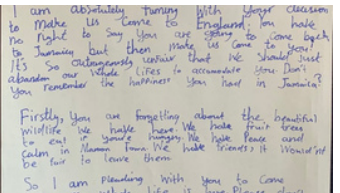 I am absolutely fuming with your decision
to make us come to England. You have
no right to say you are going to come back
to Jamaica but then make us come to you!
It's so outrageously unfair that we should just
abandon our whole lifes to accomodate you. Don't
you remember the happiness you had in Jamaica?
Firstly, you are forgetting about the beautiful
wildlife we have here. We have fruit trees
to eat if your'e hungry. We have peace and
calm in Maroon Town. We have friends! It would'nt
be fair to leave them.
So I am pleading with you to come